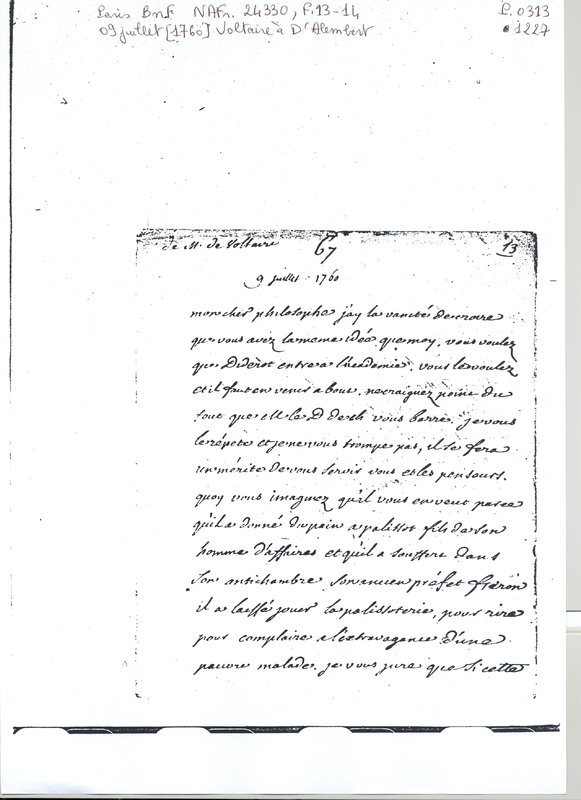 Paris BnF NAFr. 24330, f.13-14 P.0313
09 juillet [1760] Voltaire à D'Alembert 1227
de M. de Voltaire 67 13
9 juillet 1760
mon cher philosophe jay la vanité de croire
que vous avez la meme idée que moy. vous voulez
que Diderot entre a l'academie. vous le voulez
et il faut en venir a bout. ne craignez point du
tout que M le D de ch vous barre. je vous
le répete et je ne vous trompe pas, il se fera
un mérite de vous servir vous et les penseurs.
quoy vous imaginez qu'il vous en veut parce
qu'il a donné du pain a palissot fils de son
homme d'affaires et qu'il a souffert dans
son antichambre son ancien préfet fréron
il a laissé jouer la palissoterie, pour rire
pour complaire a l'extravagance d'une
pauvre malade. je vous jure que si cette